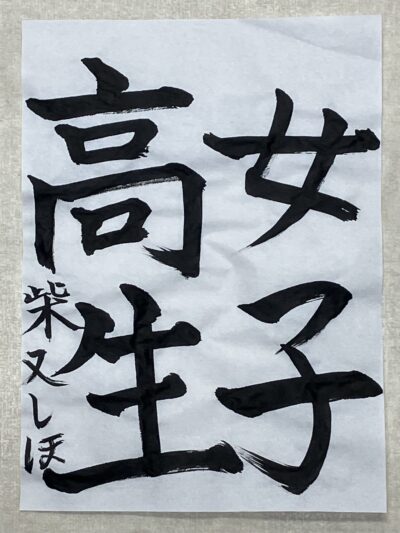 女子
高生
柴又しほ